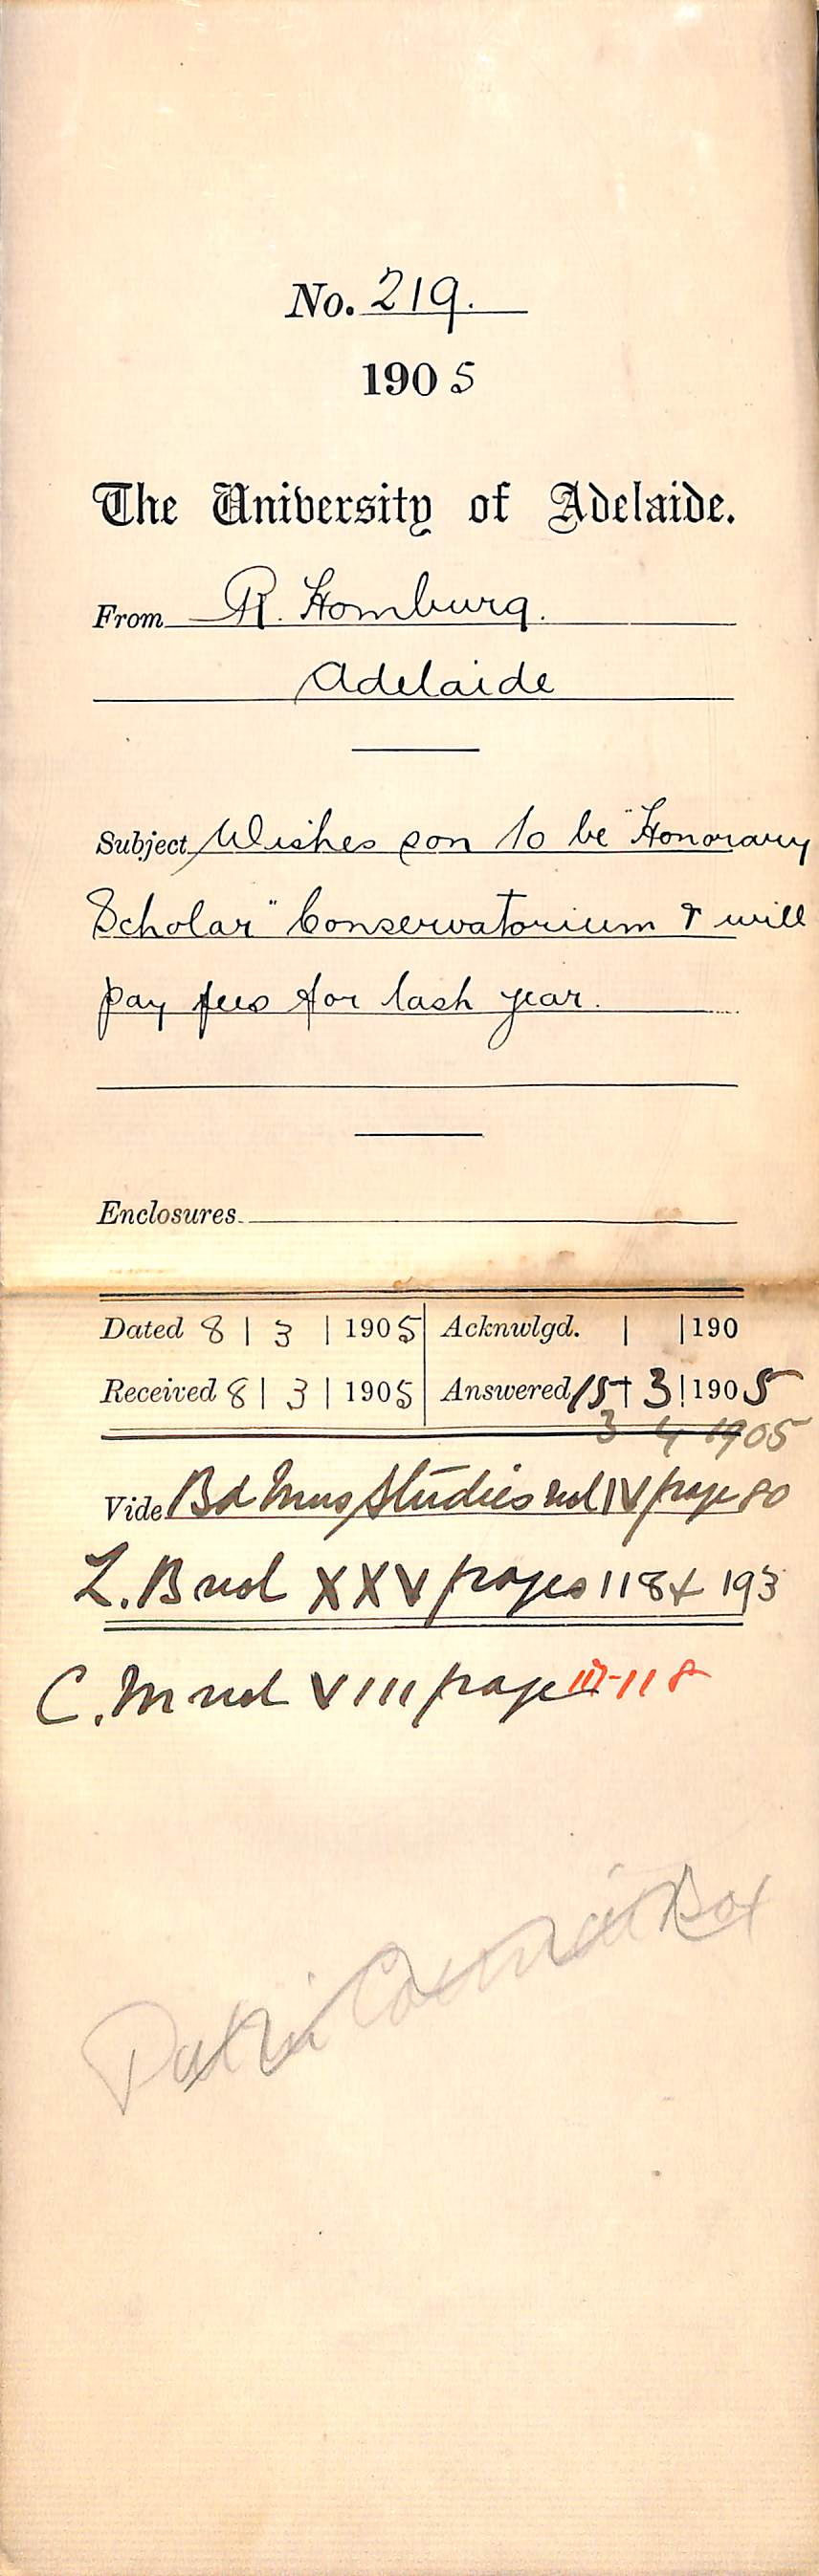 No. 219.
1905
The University of Adelaide.
From R. Homburg.
Adelaide
Subject Wishes son to be "Honorary
Scholar" Conservatorium & will
pay fees for last year.
Enclosures
Dated 8 | 3 | 1905 Acknwlgd. | | 190
Received 8 | 3 | 1905 Answered 15 | 3 | 1905
3 4 1905
Vide Bd Mus Studies vol IV page 80
L.B vol XXV pages 118 & 193
C.M vol VIII page 117-118